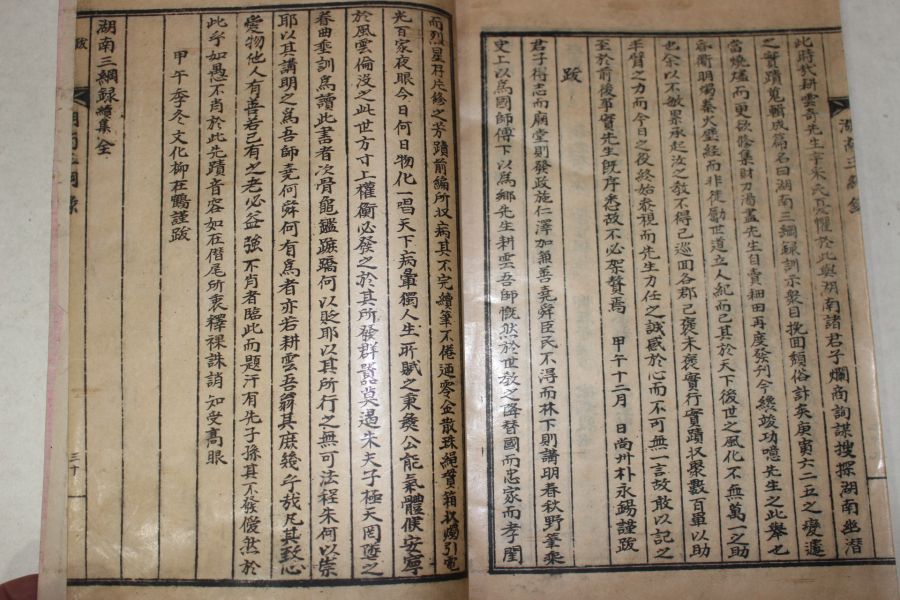 此時代耕雲奇先生宇朱氏憂懼於此與湖南諸君子爛商詢謀搜探湖南幽潛
之實蹟蒐輯成篇名曰湖南三綱録訓示衆目挽囬頹俗計矣庚寅六二五之變遽
當燒燼而更欲修集財力湯盡先生自賣細田再度發刊今纔竣功噫先生之此擧也
奚啻明燭秦火壁経而非徒勸世道立人紀而已其於天下後世之風化不無萬一之助
也余以不敏累承起汝之敎不得已巡囬各郡已褒未褒實行實蹟収聚數百單以助
半臂之力而今日之役終始泰視而先生力任之誠感於心而不可無一言故敢以記之
至於前後事實先生旣序悉故不必架贅焉 甲午十二月 日尚州朴永錫謹跋
跋
君子得志而廟堂則發政施仁澤加兼善堯舜臣民不得而林下則講明春秋野筆乘
史上以爲國師傅下以爲鄉先生耕雲吾師慨然於世敎之降替國而忠家而孝閨
而烈星存片修之芳蹟前編所収病其不完續筆不倦逎零金散珠繩貫箱収燭引電
光百家夜眼今日何日物化一唱天下病暈獨人生所賦之秉彜公能氣體候安寧
於風雲倫沒之此世方寸上權衡必發之於其所發群蹟莫過朱夫子極天罔墜之
春曲垂訓爲讀此書者次骨龜鑑蹠蹻何以貶耶以其所行之無可法程朱何以崇
耶以其講明之爲吾師堯何舜何有爲者亦若耕雲吾翁其庶幾乎哉凡其致志
愛物他人有善若己有之老必益強不肖者臨此而題汗有先子孫其不發優然於
此乎如愚不肖於此先蹟音容如在僭尾所衷釋裸誅誚知受高眼
甲午季冬文化柳在鶴謹跋
湖南三綱録續集全
湖南三綱錄
跋
三十